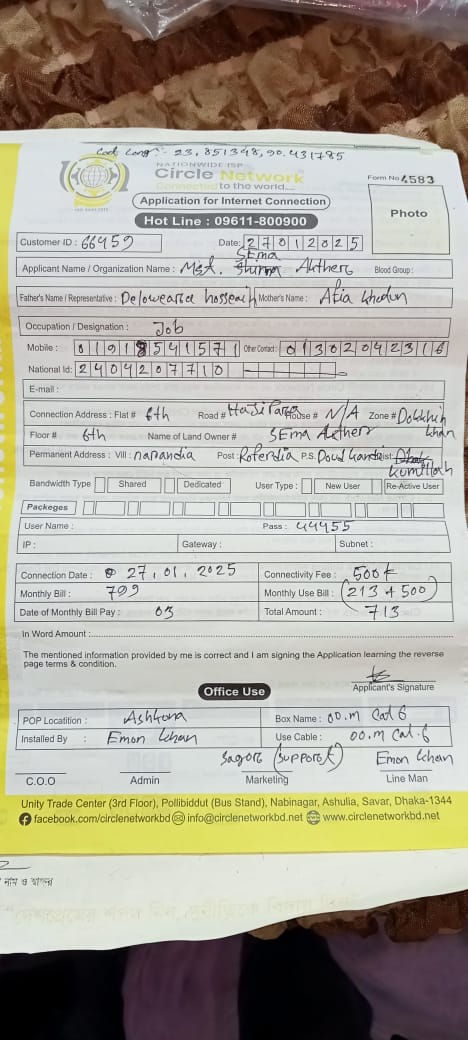 Cod Long: 23.851348, 90.431785
NATIONWIDE ISP
Circle Network
Connected to the world...
Form No 4583
ISO 9001:2015
Application for Internet Connection
Photo
Hot Line : 09611-800900
Customer ID : 66459
Date: 27012025
SEma
Applicant Name / Organization Name : Mst. Akther Blood Group :
Father's Name / Representative : Delowearca hosseain Mother's Name : Afia khedun
Occupation / Designation : Job
Mobile : 01918541571 Other Contact : 01302042316
National Id: 2404207710
E-mail :
Connection Address : Flat # 6th Road # HaJi Para House # N/A Zone # Dokkhin khan
Floor # 6th Name of Land Owner # SEma Akther
Permanent Address : Vill : narandia Post : Roferdia P.S. Doudkandi Dist: Kumillah
Bandwidth Type Shared Dedicated User Type : New User Re-Active User
Packeges
User Name : Pass : 44455
IP : Gateway : Subnet :
Connection Date : 27.01.2025 Connectivity Fee : 500tk
Monthly Bill : 799 Monthly Use Bill : (213+500)
Date of Monthly Bill Pay : 03 Total Amount : 713
In Word Amount :
The mentioned information provided by me is correct and I am signing the Application learning the reverse
page terms & condition.
Applicant's Signature
Office Use
POP Locatition : Ashkona Box Name : 00.m Cat 6
Installed By : Emon khan Use Cable : 00.m Cat.6
Sagor (Support) Emon khan
C.O.O Admin Marketing Line Man
Unity Trade Center (3rd Floor), Pollibiddut (Bus Stand), Nabinagar, Ashulia, Savar, Dhaka-1344
facebook.com/circlenetworkbd info@circlenetworkbd.net www.circlenetworkbd.net
নাম ও স্বাক্ষর